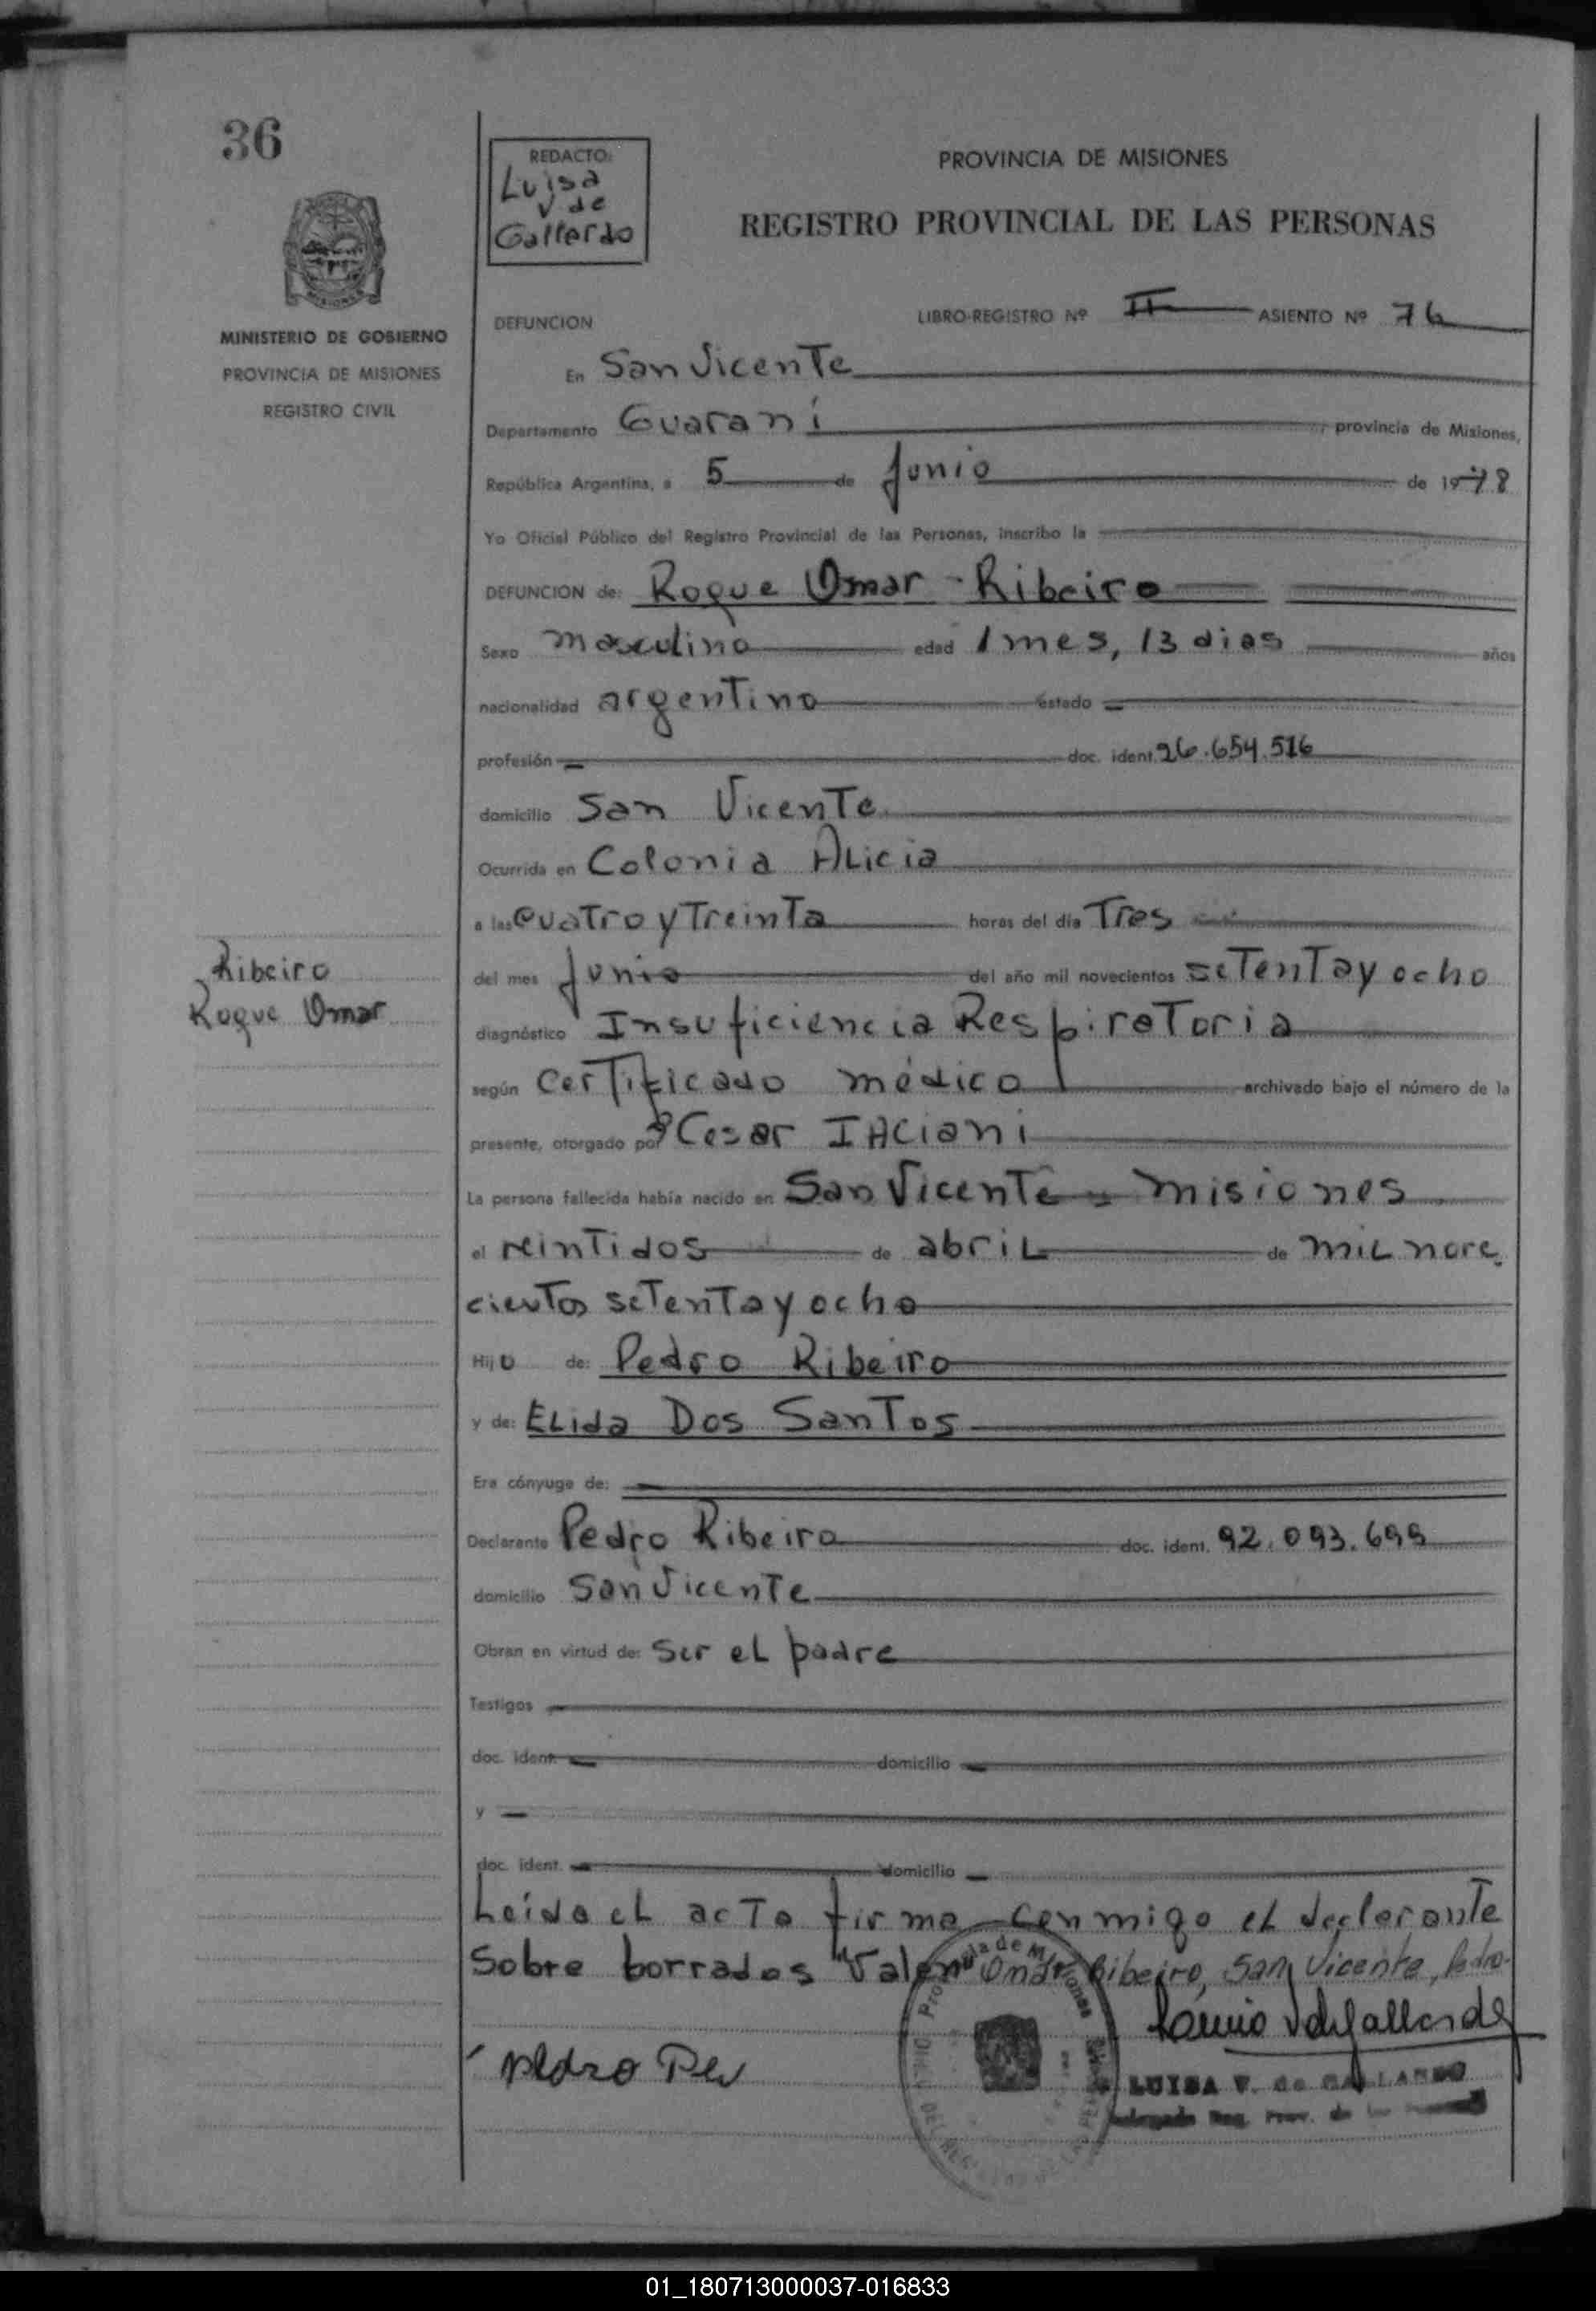 36
REDACTO:
Luisa
V de
Gallardo
PROVINCIA DE MISIONES
REGISTRO PROVINCIAL DE LAS PERSONAS
MISIONES
MINISTERIO DE GOBIERNO
PROVINCIA DE MISIONES
REGISTRO CIVIL
DEFUNCION LIBRO-REGISTRO Nº II ASIENTO Nº 76
En San Vicente
Departamento Guaraní provincia de Misiones,
República Argentina, a 5 de Junio de 1978
Yo Oficial Público del Registro Provincial de las Personas, inscribo la
DEFUNCION de: Roque Omar - Ribeiro
Sexo masculino edad 1 mes, 13 dias años
nacionalidad argentino estado —
profesión — doc. ident. 26.654.516
domicilio San Vicente
Ocurrida en Colonia Alicia
a las cuatro y Treinta horas del día Tres
Ribeiro
Roque Omar
del mes Junio del año mil novecientos setenta y ocho
diagnóstico Insuficiencia Respiratoria
según Certificado médico archivado bajo el número de la
presente, otorgado por Cesar
La persona fallecida había nacido en San Vicente - Misiones
el veintidos de abril de mil nove
cientos setenta y ocho
Hijo de: Pedro Ribeiro
y de: Elida Dos Santos
Era cónyuge de: —
Declarante Pedro Ribeiro doc. ident. 92.093.699
domicilio San Vicente
Obran en virtud de: Ser el padre
Testigos —
doc. ident. — domicilio —
y —
doc. ident. — domicilio —
Leída el acta firma conmigo el declarante
Sobre borrados "Valen" Omar Ribeiro, San Vicente, Pedro-
Provincia de Misiones
Pedro
LUISA V. de GALLARDO
01_180713000037-016833